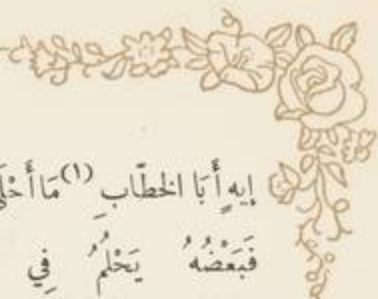 إِيهٍ أَبَا الخَطَّابِ (١) مَا أَحْلَى
فَبَعْضُهُ يَحْلُمُ فِي